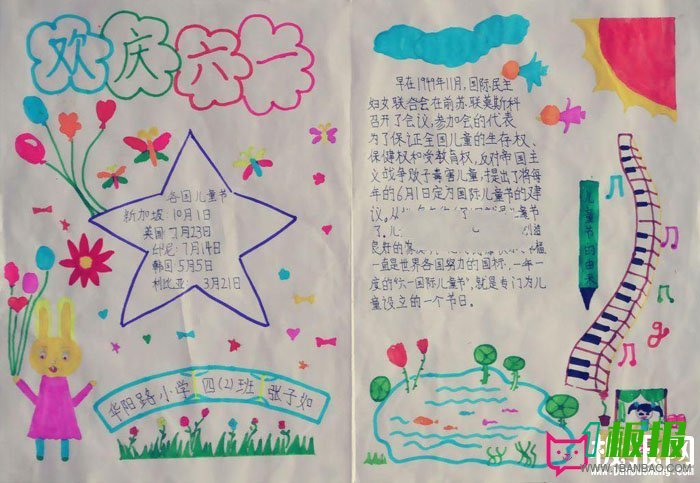 欢庆六一
各国儿童节
新加坡 10月1日
美国 7月23日
印尼：7月14日
韩国 5月5日
利比亚： 3月21日
华阳路小学 四(2)班 张子如
早在1949年11月，国际民主
妇女联合会在前苏联莫斯科
召开了会议，参加会的代表
为了保证全国儿童的生存权、
保健权和受教育权，反对帝国主
义战争贩子毒害儿童，提出了将每
年的6月1日定为国际儿童节的建
议。
节
了。儿
良好的 福
一直是世界各国努力的目标，一年一
度的"六一国际儿童节"，就是专门为儿
童设立的一个节日。
儿童节的由来
板报
WWW.1BANBAO.COM